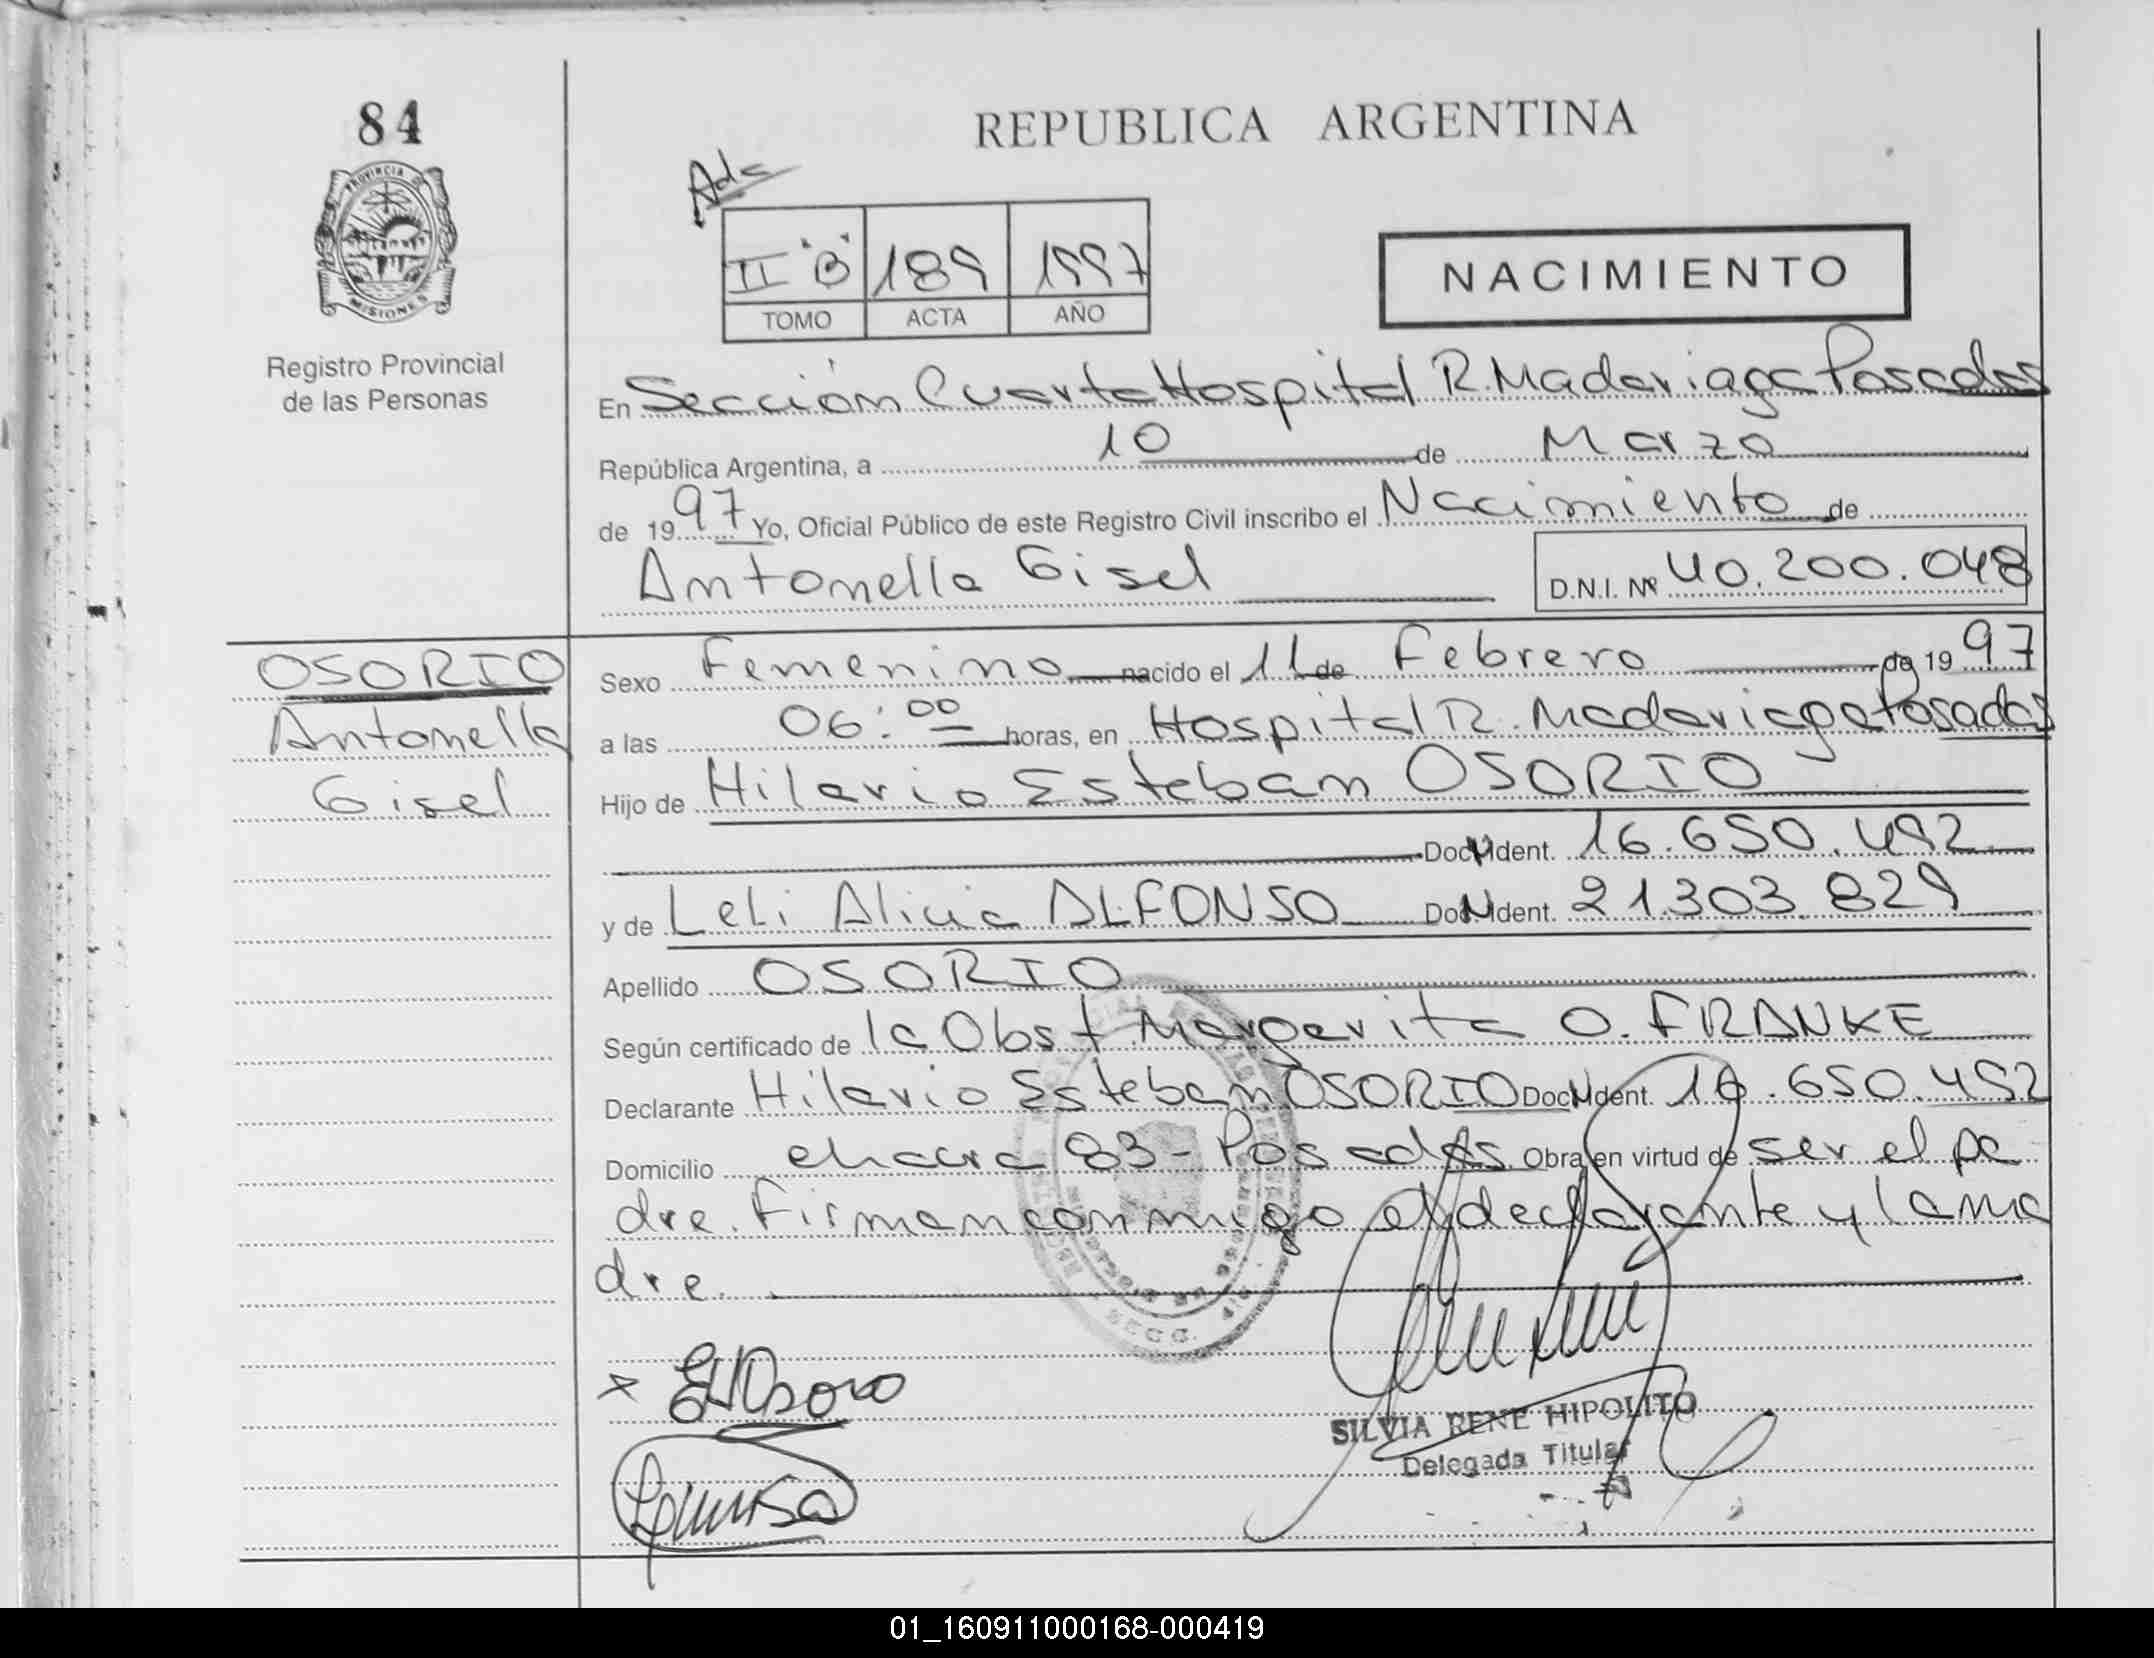 84
REPUBLICA ARGENTINA
PROVINCIA DE
MISIONES
Registro Provincial
de las Personas
II "B" 189 1997
TOMO ACTA AÑO
NACIMIENTO
En Sección Cuarta Hospital R. Madariaga Posadas
República Argentina, a 10 de Marzo
de 1997 Yo, Oficial Público de este Registro Civil inscribo el Nacimiento de
Antonella Gisel D.N.I. Nº 40.200.048
OSORIO
Antonella
Gisel
Sexo Femenino nacido el 11 de Febrero de 1997
a las 06:00 horas, en Hospital R. Madariaga Posadas
Hijo de Hilario Esteban OSORIO
Doc. Ident. 16.650.492
y de Leli Alicia ALFONSO Doc. Ident. 21.303.829
Apellido OSORIO
Según certificado de la Obst. Margarita O. FRANKE
Declarante Hilario Esteban OSORIO Doc. Ident. 16.650.492
Domicilio chacra 83 - Posadas Obra en virtud de ser el pa
dre. Firman conmigo el declarante y la ma
dre.
SILVIA RENE HIPOLITO
Delegada Titular
01_160911000168-000419